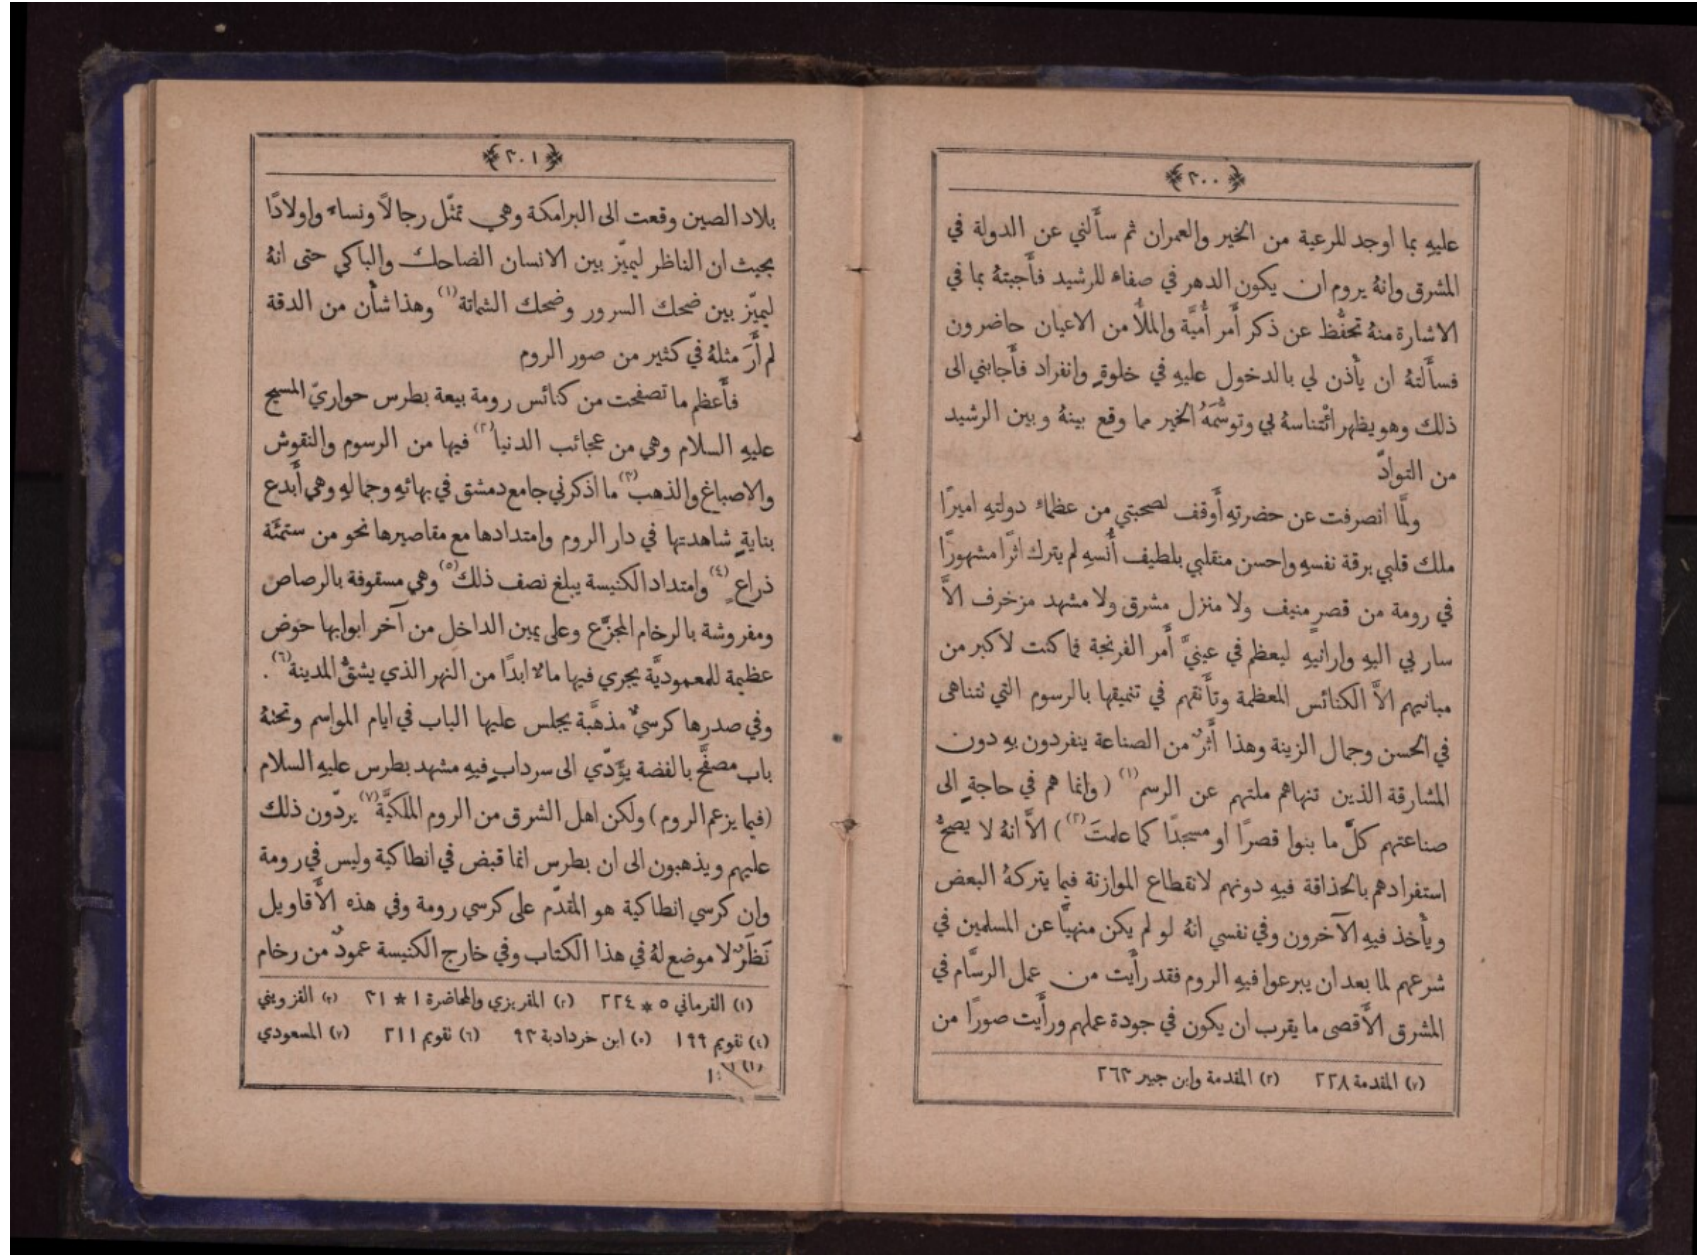 ﴿٢٠٠﴾
عليهِ بما اوجد للرعية من الخير والعمران ثم سأَلني عن الدولة في
المشرق وانهُ يروم ان يكون الدهر في صفاء للرشيد فأَجبتهُ بما في
الاشارة منهُ تحفُّظ عن ذكر أَمر أُميَّة والملأُ من الاعيان حاضرون
فسأَلتهُ ان يأْذن لي بالدخول عليهِ في خلوةٍ وانفراد فأَجابني الى
ذلك وهو يظهر ائْتناسهُ بي وتوسُّمَهُ الخير مما وقع بينهُ وبين الرشيد
من التوادّ
ولمَّا انصرفت عن حضرتهِ أَوقف لصحبتي من عظماء دولتهِ اميرًا
ملك قلبي برقة نفسهِ واحسن منقلبي بلطيف أُنسهِ لم يترك اثرًا مشهورًا
في رومة من قصرٍ منيف ولا منزل مشرق ولا مشهد مزخرف الاَّ
سار بي اليهِ وارانيهِ ليعظم في عينيَّ أَمر الفرنجة فما كنت لاكبر من
مبانيهم الاَّ الكنائس المعظمة وتأَنقهم في تنميقها بالرسوم التي نتناهى
في الحسن وجمال الزينة وهذا أَثرٌ من الصناعة ينفردون بهِ دون
المشارقة الذين تنهاهم ملتهم عن الرسم (١) (وانما هم في حاجةٍ الى
صناعتهم كلَّ ما بنوا قصرًا او مسجدًا كما علمتَ (٢)) الاَّ انهُ لا يصحُّ
استفرادهم بالحذاقة فيهِ دونهم لانقطاع الموازنة فيما يتركهُ البعض
ويأْخذ فيهِ الآخرون وفي نفسي انهُ لو لم يكن منهيًّا عن المسلمين في
شرعهم لما بعد ان يبرعوا فيهِ الروم فقد رأَيت من عمل الرسَّام في
المشرق الأَقصى ما يقرب ان يكون في جودة عملهم ورأَيت صورًا من
(١) المقدمة ٢٢٨ (٢) المقدمة وابن جبير ٢٦٣
﴿٢٠١﴾
بلاد الصين وقعت الى البرامكة وهي تمثّل رجالاً ونساءً واولادًا
بحيث ان الناظر ليميّز بين الانسان الضاحك والباكي حتى انهُ
ليميّز بين ضحك السرور وضحك الشماتة (١) وهذا شأْن من الدقة
لم أَرَ مثلهُ في كثير من صور الروم
فأَعظم ما تصفحت من كنائس رومة بيعة بطرس حواريّ المسيح
عليهِ السلام وهي من عجائب الدنيا (٢) فيها من الرسوم والنقوش
والاصباغ والذهب (٣) ما اذكرني جامع دمشق في بهائهِ وجمالهِ وهي أَبدع
بنايةٍ شاهدتها في دار الروم وامتدادها مع مقاصيرها نحو من ستمئة
ذراعٍ (٤) وامتداد الكنيسة يبلغ نصف ذلك (٥) وهي مسقوفة بالرصاص
ومفروشة بالرخام المجزَّع وعلى يمين الداخل من آخر ابوابها حوض
عظيمة للمعموديَّة يجري فيها مالا ابدًا من النهر الذي يشقُّ المدينة (٦) .
وفي صدرها كرسيٌّ مذهَّبة يجلس عليها الباب في ايام المواسم وتحتهُ
باب مصفَّح بالفضة يؤَدّي الى سردابٍ فيهِ مشهد بطرس عليهِ السلام
(فيما يزعم الروم) ولكن اهل الشرق من الروم الملكيَّة (٧) يردّون ذلك
عليهم ويذهبون الى ان بطرس انما قبض في انطاكية وليس في رومة
وان كرسي انطاكية هو المقدّم على كرسي رومة وفي هذه الأَقاويل
نَظَرٌ لا موضع لهُ في هذا الكتاب وفي خارج الكنيسة عمودٌ من رخام
(١) القرماني ٥ * ٢٢٤ (٢) المقريزي والمحاضرة ١ * ٣١ (٣) القزويني
(٤) نقويم ١٩٩ (٥) ابن خردادبة ٩٣ (٦) نقويم ٢١١ (٧) المسعودي